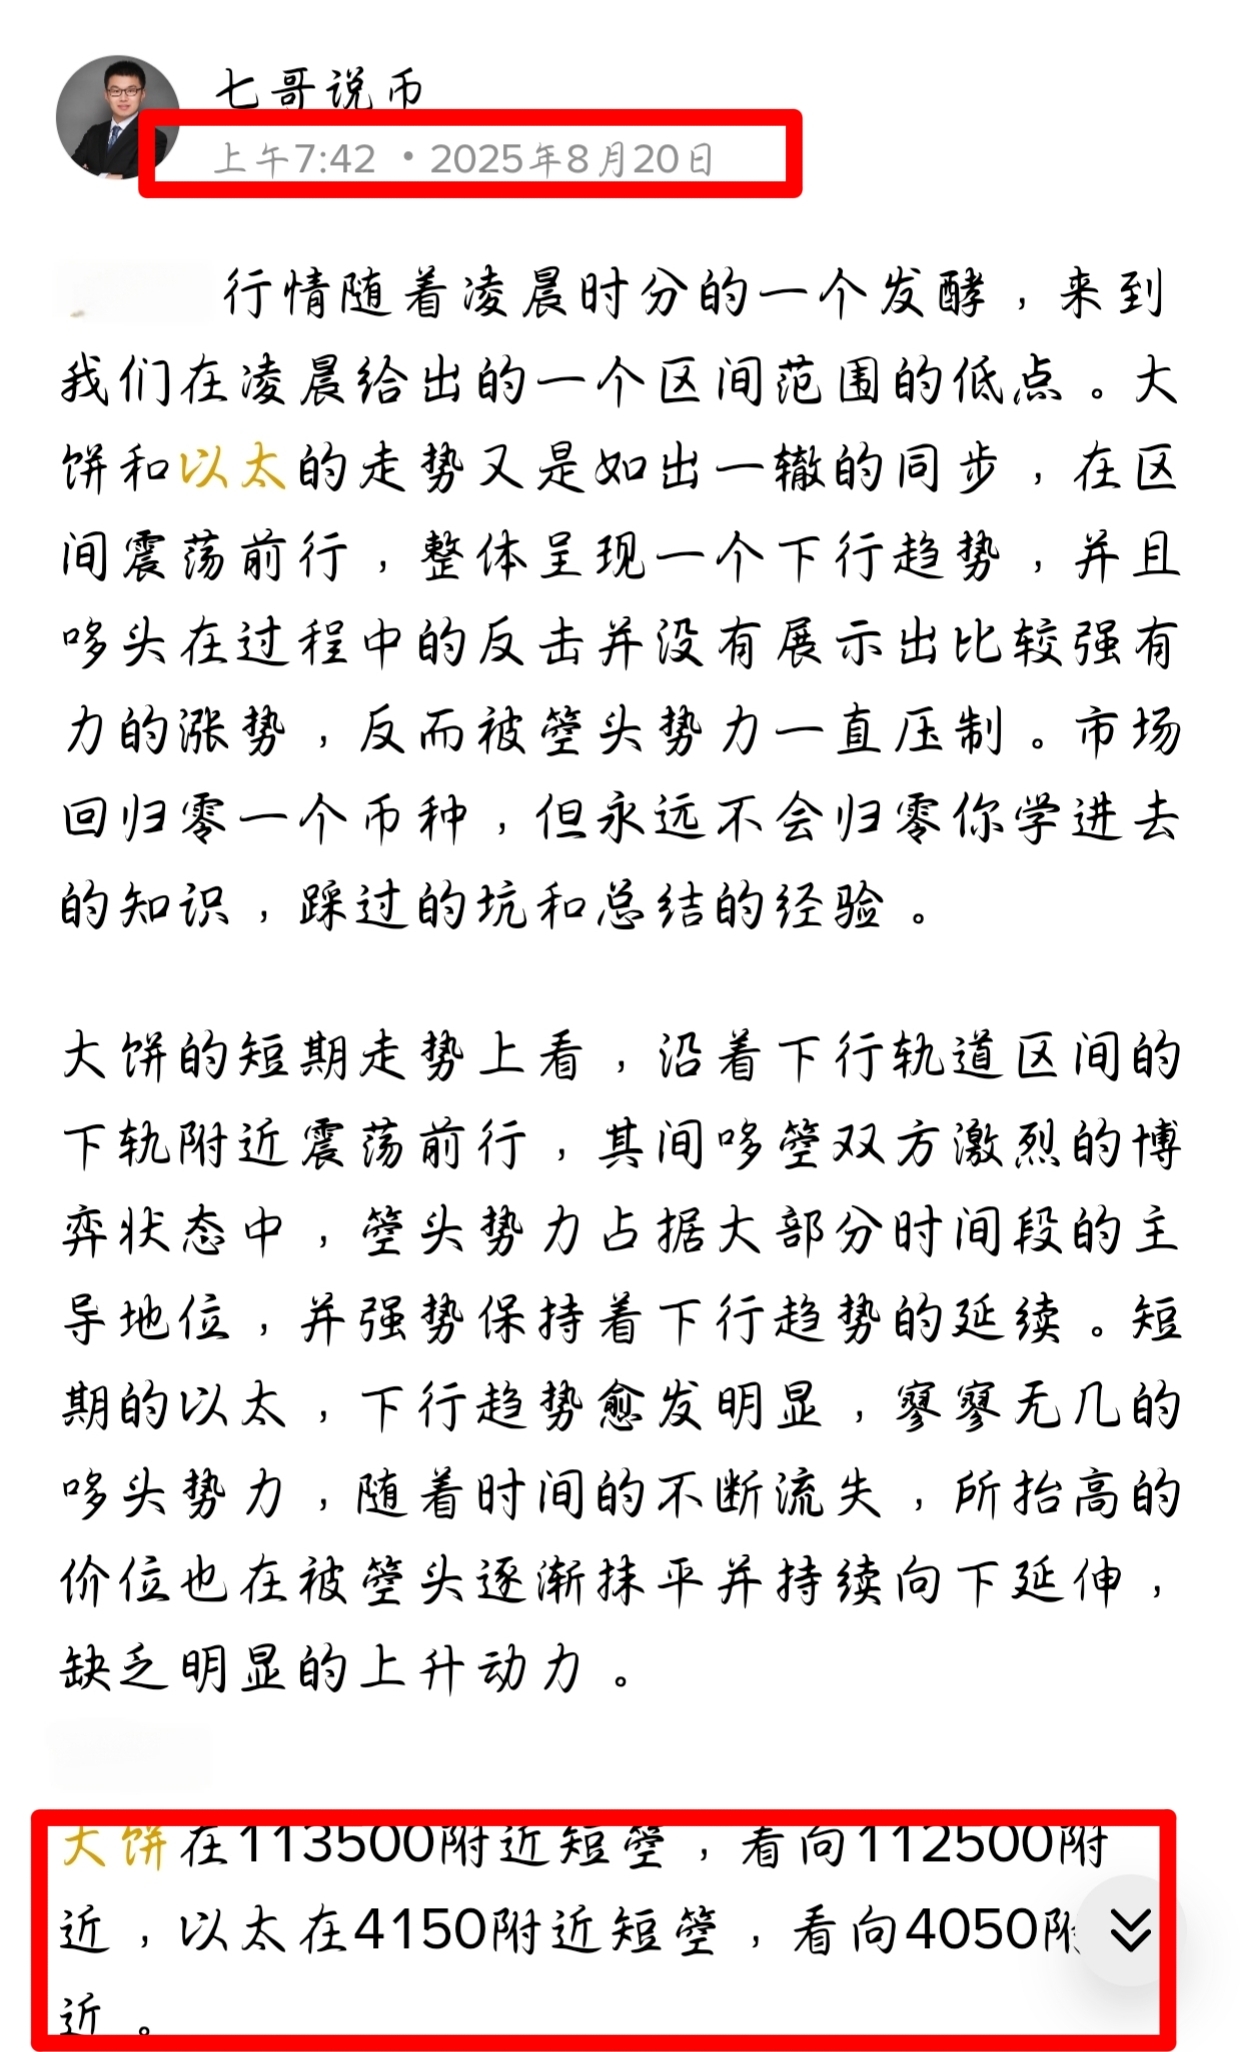 七哥说币
上午7:42 • 2025年8月20日
行情随着凌晨时分的一个发酵，来到
我们在凌晨给出的一个区间范围的低点。大
饼和以太的走势又是如出一辙的同步，在区
间震荡前行，整体呈现一个下行趋势，并且
哆头在过程中的反击并没有展示出比较强有
力的涨势，反而被箜头势力一直压制。市场
回归零一个币种，但永远不会归零你学进去
的知识，踩过的坑和总结的经验。
大饼的短期走势上看，沿着下行轨道区间的
下轨附近震荡前行，其间哆箜双方激烈的博
弈状态中，箜头势力占据大部分时间段的主
导地位，并强势保持着下行趋势的延续。短
期的以太，下行趋势愈发明显，寥寥无几的
哆头势力，随着时间的不断流失，所抬高的
价位也在被箜头逐渐抹平并持续向下延伸，
缺乏明显的上升动力。
大饼在113500附近短箜，看向112500附
近，以太在4150附近短箜，看向4050附
近。